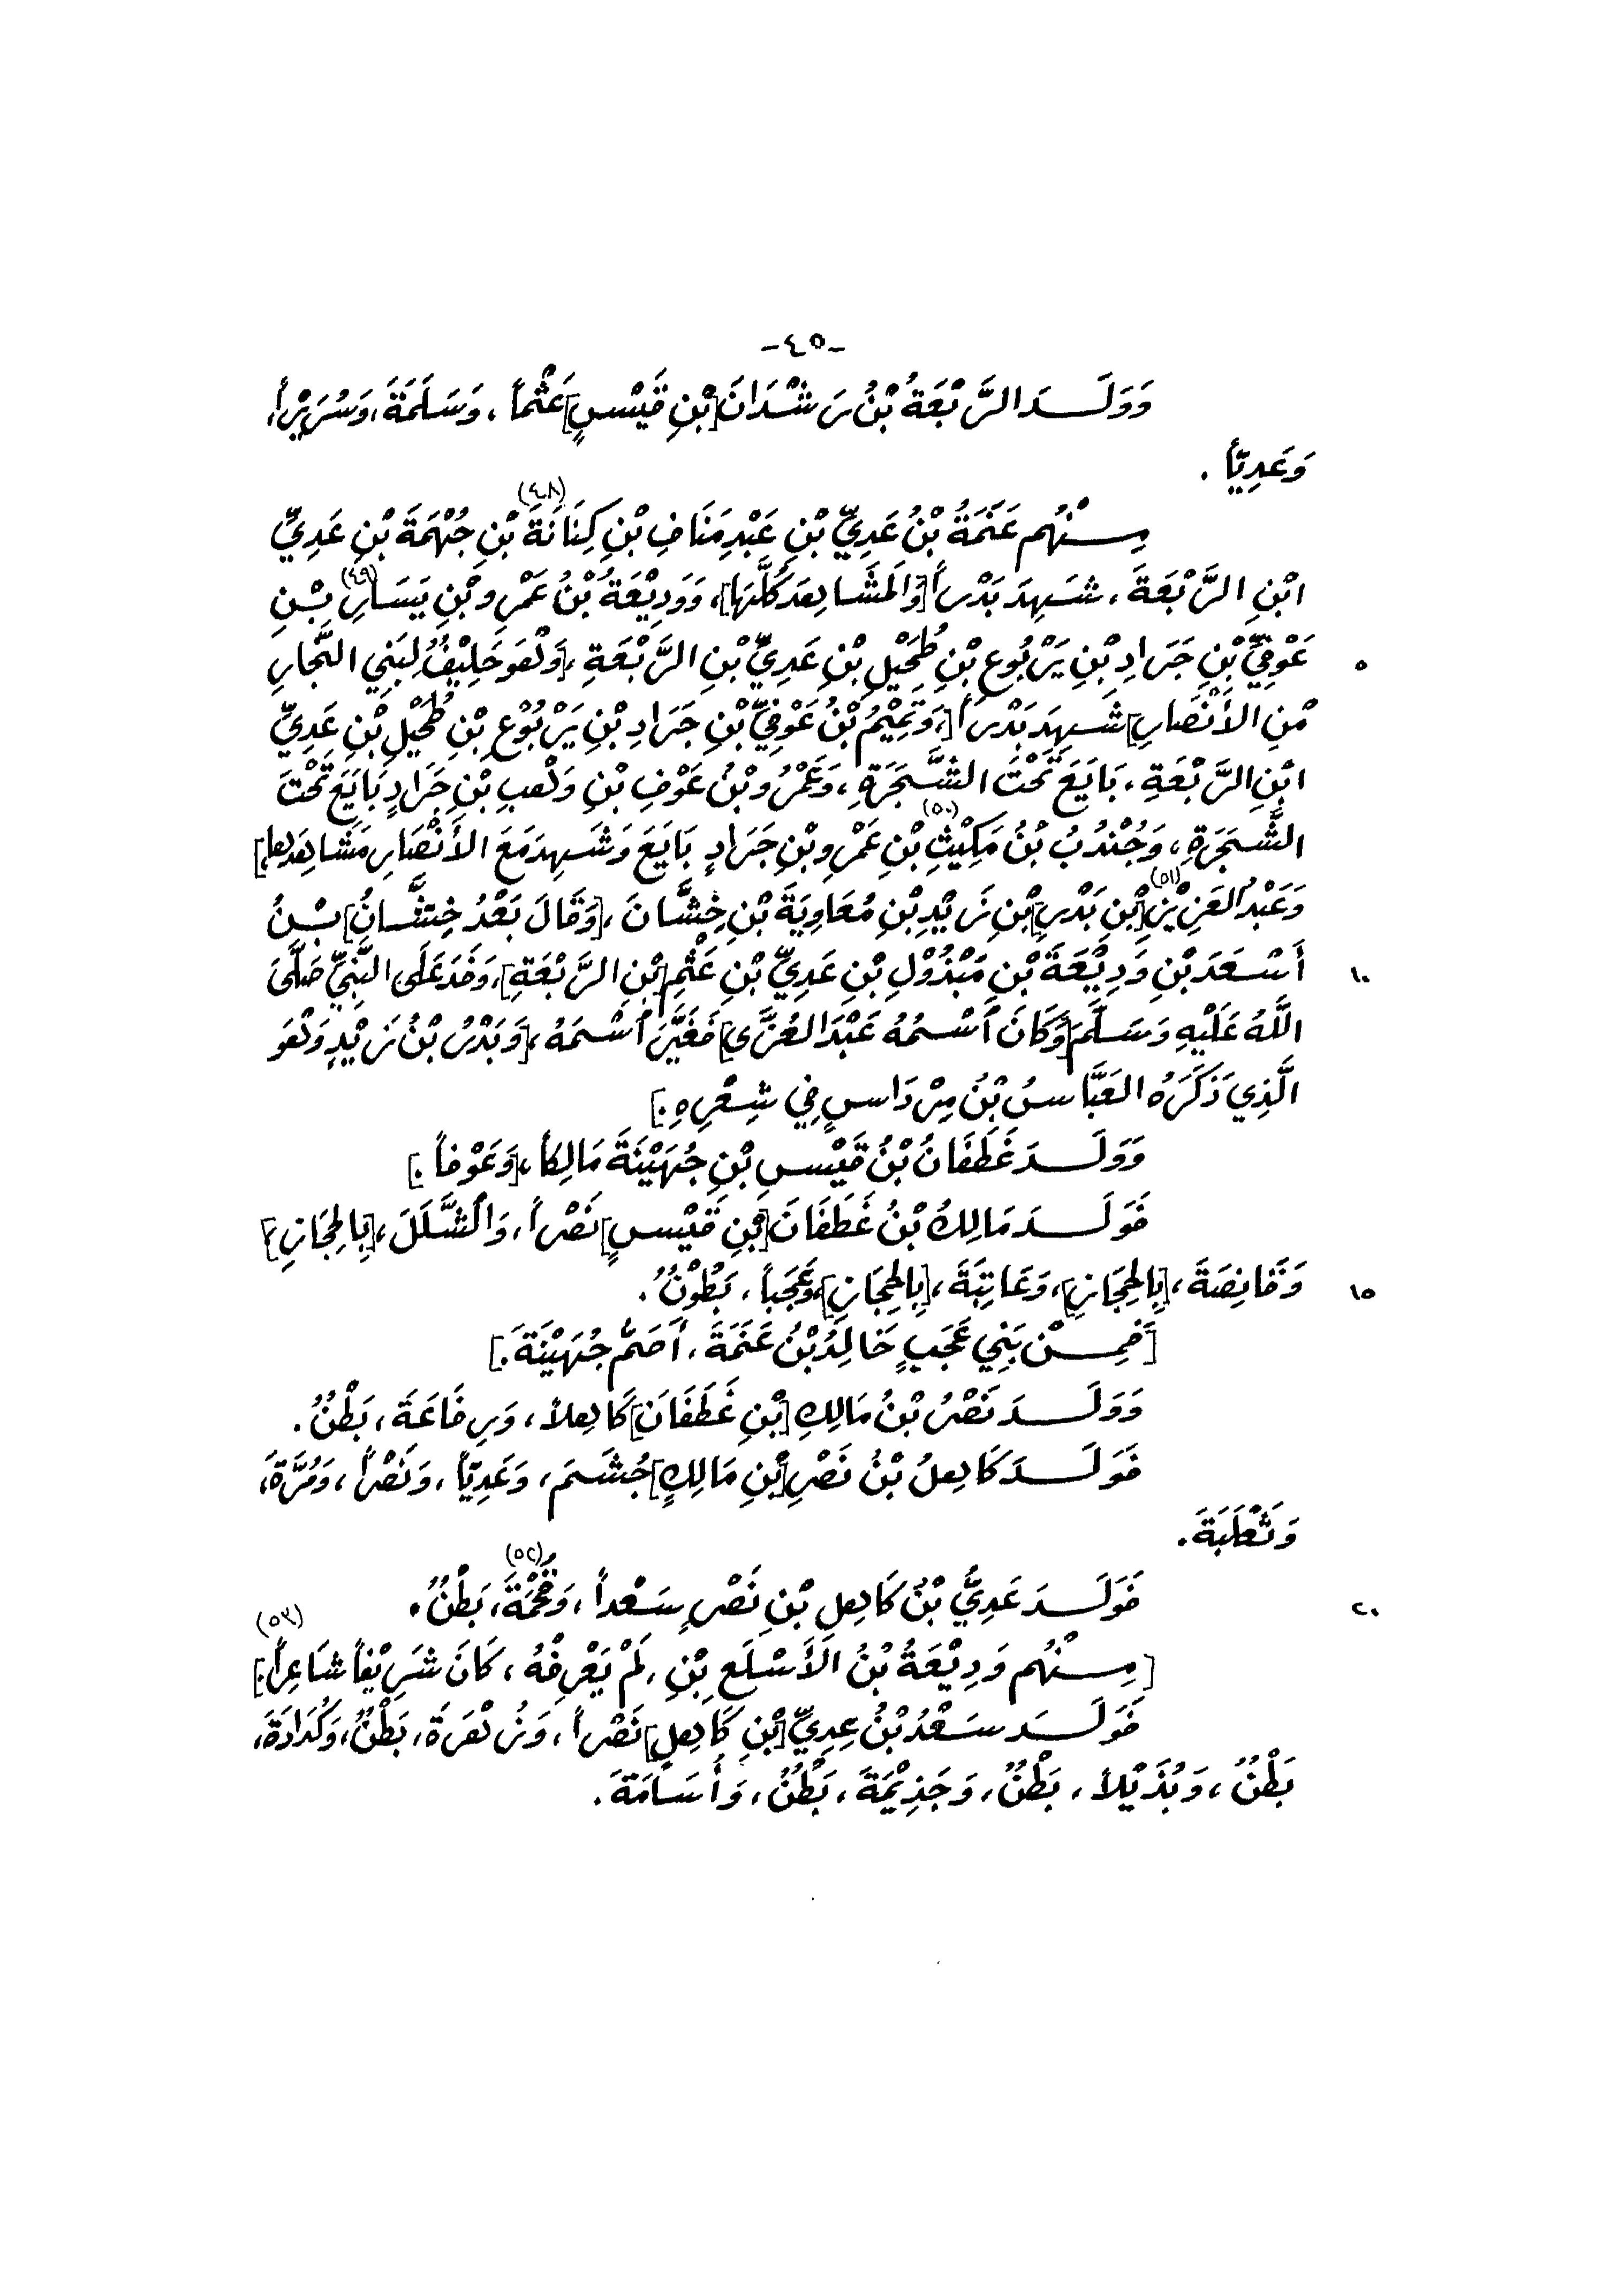 -٤٥-
وَوَلَـــدَ الرَّبْعَةُ بْنُ رَشْدَانَ [بْنِ قَيْسٍ] عَثْماً، وَسَلَمَةَ، وَسُرَيْراً،
وَعَدِيّاً.
مِــنْهُم عَنَمَةُ بْنُ عَدِيِّ بْنِ عَبْدِ مَنَافِ بْنِ كِنَانَةَ (٤٨) بْنِ جُهْمَةَ بْنِ عَدِيِّ
ابْنِ الرَّبْعَةَ، شَهِدَ بَدْراً [وَالمَشَاهِدَ كُلَّهَا]، وَوَدِيْعَةُ بْنُ عَمْرِو بْنِ يَسَارِ (٤٩) بْنِ
٥ عَوْفِيِّ بْنِ جَرَادِ بْنِ يَرْبُوعِ بْنِ طُحَيْلِ بْنِ عَدِيِّ بْنِ الرَّبْعَةِ، [وَهُوَ حَلِيْفٌ لِبَنِي النَّجَّارِ
مْنِ الأَنْصَارِ] شَهِدَ بَدْراً [، وَتَمِيْمُ بْنُ عَوْفِيِّ بْنِ جَرَادِ بْنِ يَرْبُوْعِ بْنِ طُحَيْلِ بْنِ عَدِيِّ
ابْنِ الرَّبْعَةِ، بَايَعَ تَحْتَ الشَّجَرَةِ، وَعَمْرُو بْنُ عَوْفِ بْنِ وَهْبِ بْنِ جَرَادٍ بَايَعَ تَحْتَ
الشَّجَرَةِ، وَجُنْدُبُ بْنُ مَكِيْثِ (٥٠) بْنِ عَمْرِو بْنِ جَرَادٍ بَايَعَ وَشَهِدَ مَعَ الأَنْصَارِ مَشَاهِدَهَا،]
وَعَبْدُ العَزِيْزِ (٥١) [بْنِ بَدْرِ] بْنِ زَيْدِ بْنِ مُعَاوِيَةَ بْنِ خِشَّانَ، [وَقَالَ بَعْدُ خِشَّانُ] بْـنُ
١٠ أَسْعَدَ بْنِ وَدِيْعَةَ بْنِ مَبْذُوْلِ بْنِ عَدِيِّ بْنِ عَثْمِ [بْنِ الرَّبْعَةِ]، وَفَدَ عَلَى النَّبِيِّ صَلَّىَ
اللَّهُ عَلَيْهِ وَسَلَّمَ [وَكَانَ ٱسْمُهُ عَبْدَ العُزَّى] فَغَيَّرَ ٱسْمَهُ، [وَبَدْرُ بْنُ زَيْدٍ وَهْوَ
الَّذِي ذَكَرَهُ العَبَّاسُ بْنُ مِرْدَاسٍ فِي شِعْرِهِ.]
وَوَلَـــدَ غَطَفَانُ بْنُ قَيْسِ بْنِ جُهَيْنَةَ مَالِكاً، [وَعَوْفاً.]
فَوَلَـــدَ مَالِكُ بْنُ غَطَفَانَ [بْنِ قَيْسٍ] نَصْراً، وَالشَّلَلَ، [بِالحِجَازِ]
١٥ وَقَانِصَةَ، [بِالحِجَازِ]، وَعَاتِبَةَ، [بِالحِجَازِ]، وَعَجَباً، بُطُوْنٌ.
[فَمِـــنْ بَنِي عَجَبٍ خَالِدُ بْنُ عَنَمَةَ، أَصَمُّ جُهَيْنَةَ.]
وَوَلَـــدَ نَصْرُ بْنُ مَالِكِ [بْنِ غَطَفَانَ] كَاهِلاً، وَرِفَاعَةَ، بَطْنٌ.
فَوَلَـــدَ كَاهِلُ بْنُ نَصْرِ [بْنِ مَالِكٍ] جُشَمَ، وَعَدِيّاً، وَنَصْراً، وَمُرَّةَ،
وَثَعْلَبَةَ.
٢٠ فَوَلَـــدَ عَدِيُّ بْنُ كَاهِلِ بْنِ نَصْرٍ سَعْداً، وَقُحْمَةَ (٥٢)، بَطْنٌ.
[مِــنْهُم وَدِيْعَةُ بْنُ الأَسْلَعِ بْنِ، لَمْ يَعْرِفْهُ، كَانَ شَرِيْفاً شَاعِراً.] (٥٣)
فَوَلَـــدَ سَعْدُ بْنُ عِدِيِّ [بْنِ كَاهِلٍ] نَصْراً، وَزُهْرَةَ، بَطْنٌ، وَكُدَادَةَ،
بَطْنٌ، وَبُذَيْلاً، بَطْنٌ، وَجَذِيْمَةَ، بَطْنٌ، وَأُسَامَةَ.